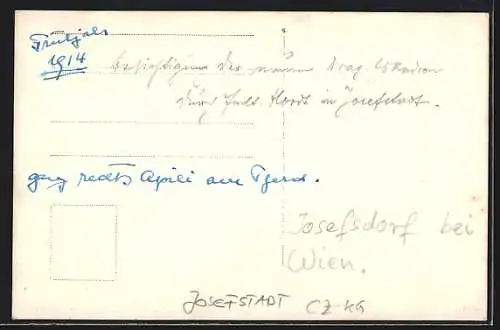 Frühjahr
1914
Besichtigung der neuen Drag. Eskadron
durch in Josefstadt.
ganz rechts am Pferd.
Josefsdorf bei
Wien.
JOSEFSTADT CZ-KG